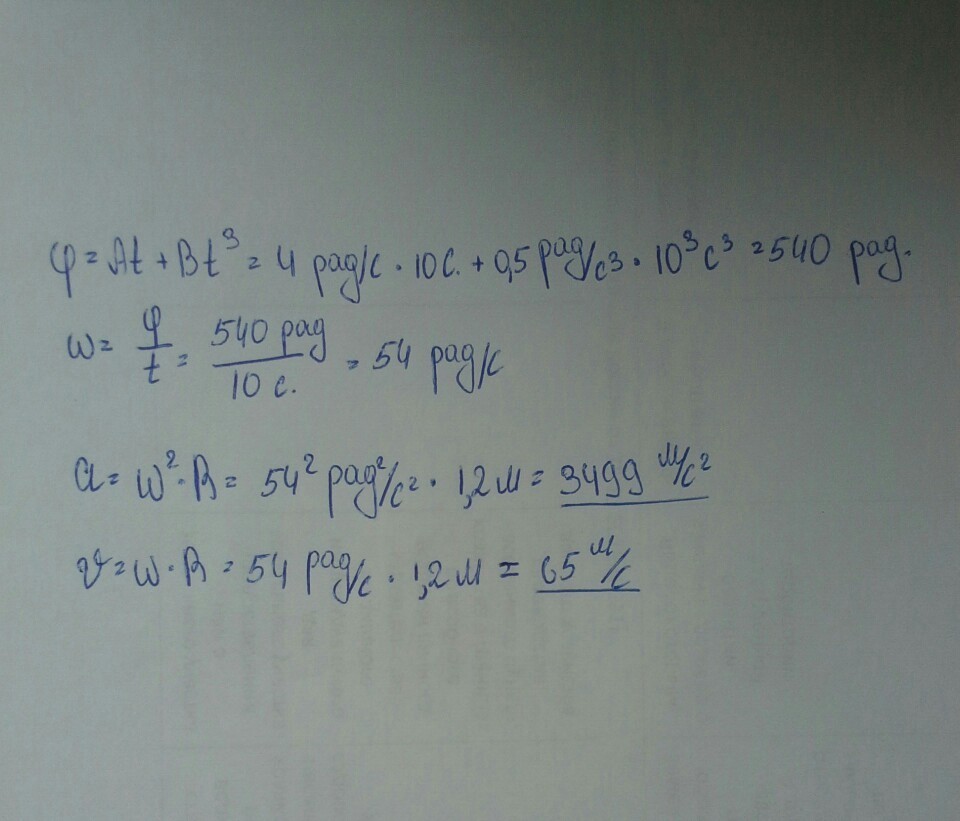 φ = At + Bt³ = 4 рад/с · 10 с. + 0,5 рад/с³ · 10³ с³ = 540 рад.
ω = φ/t = 540 рад/10 с. = 54 рад/с
a = ω² · R = 54² рад²/с² · 1,2 м = 3499 м/с²
v = ω · R = 54 рад/с · 1,2 м = 65 м/с